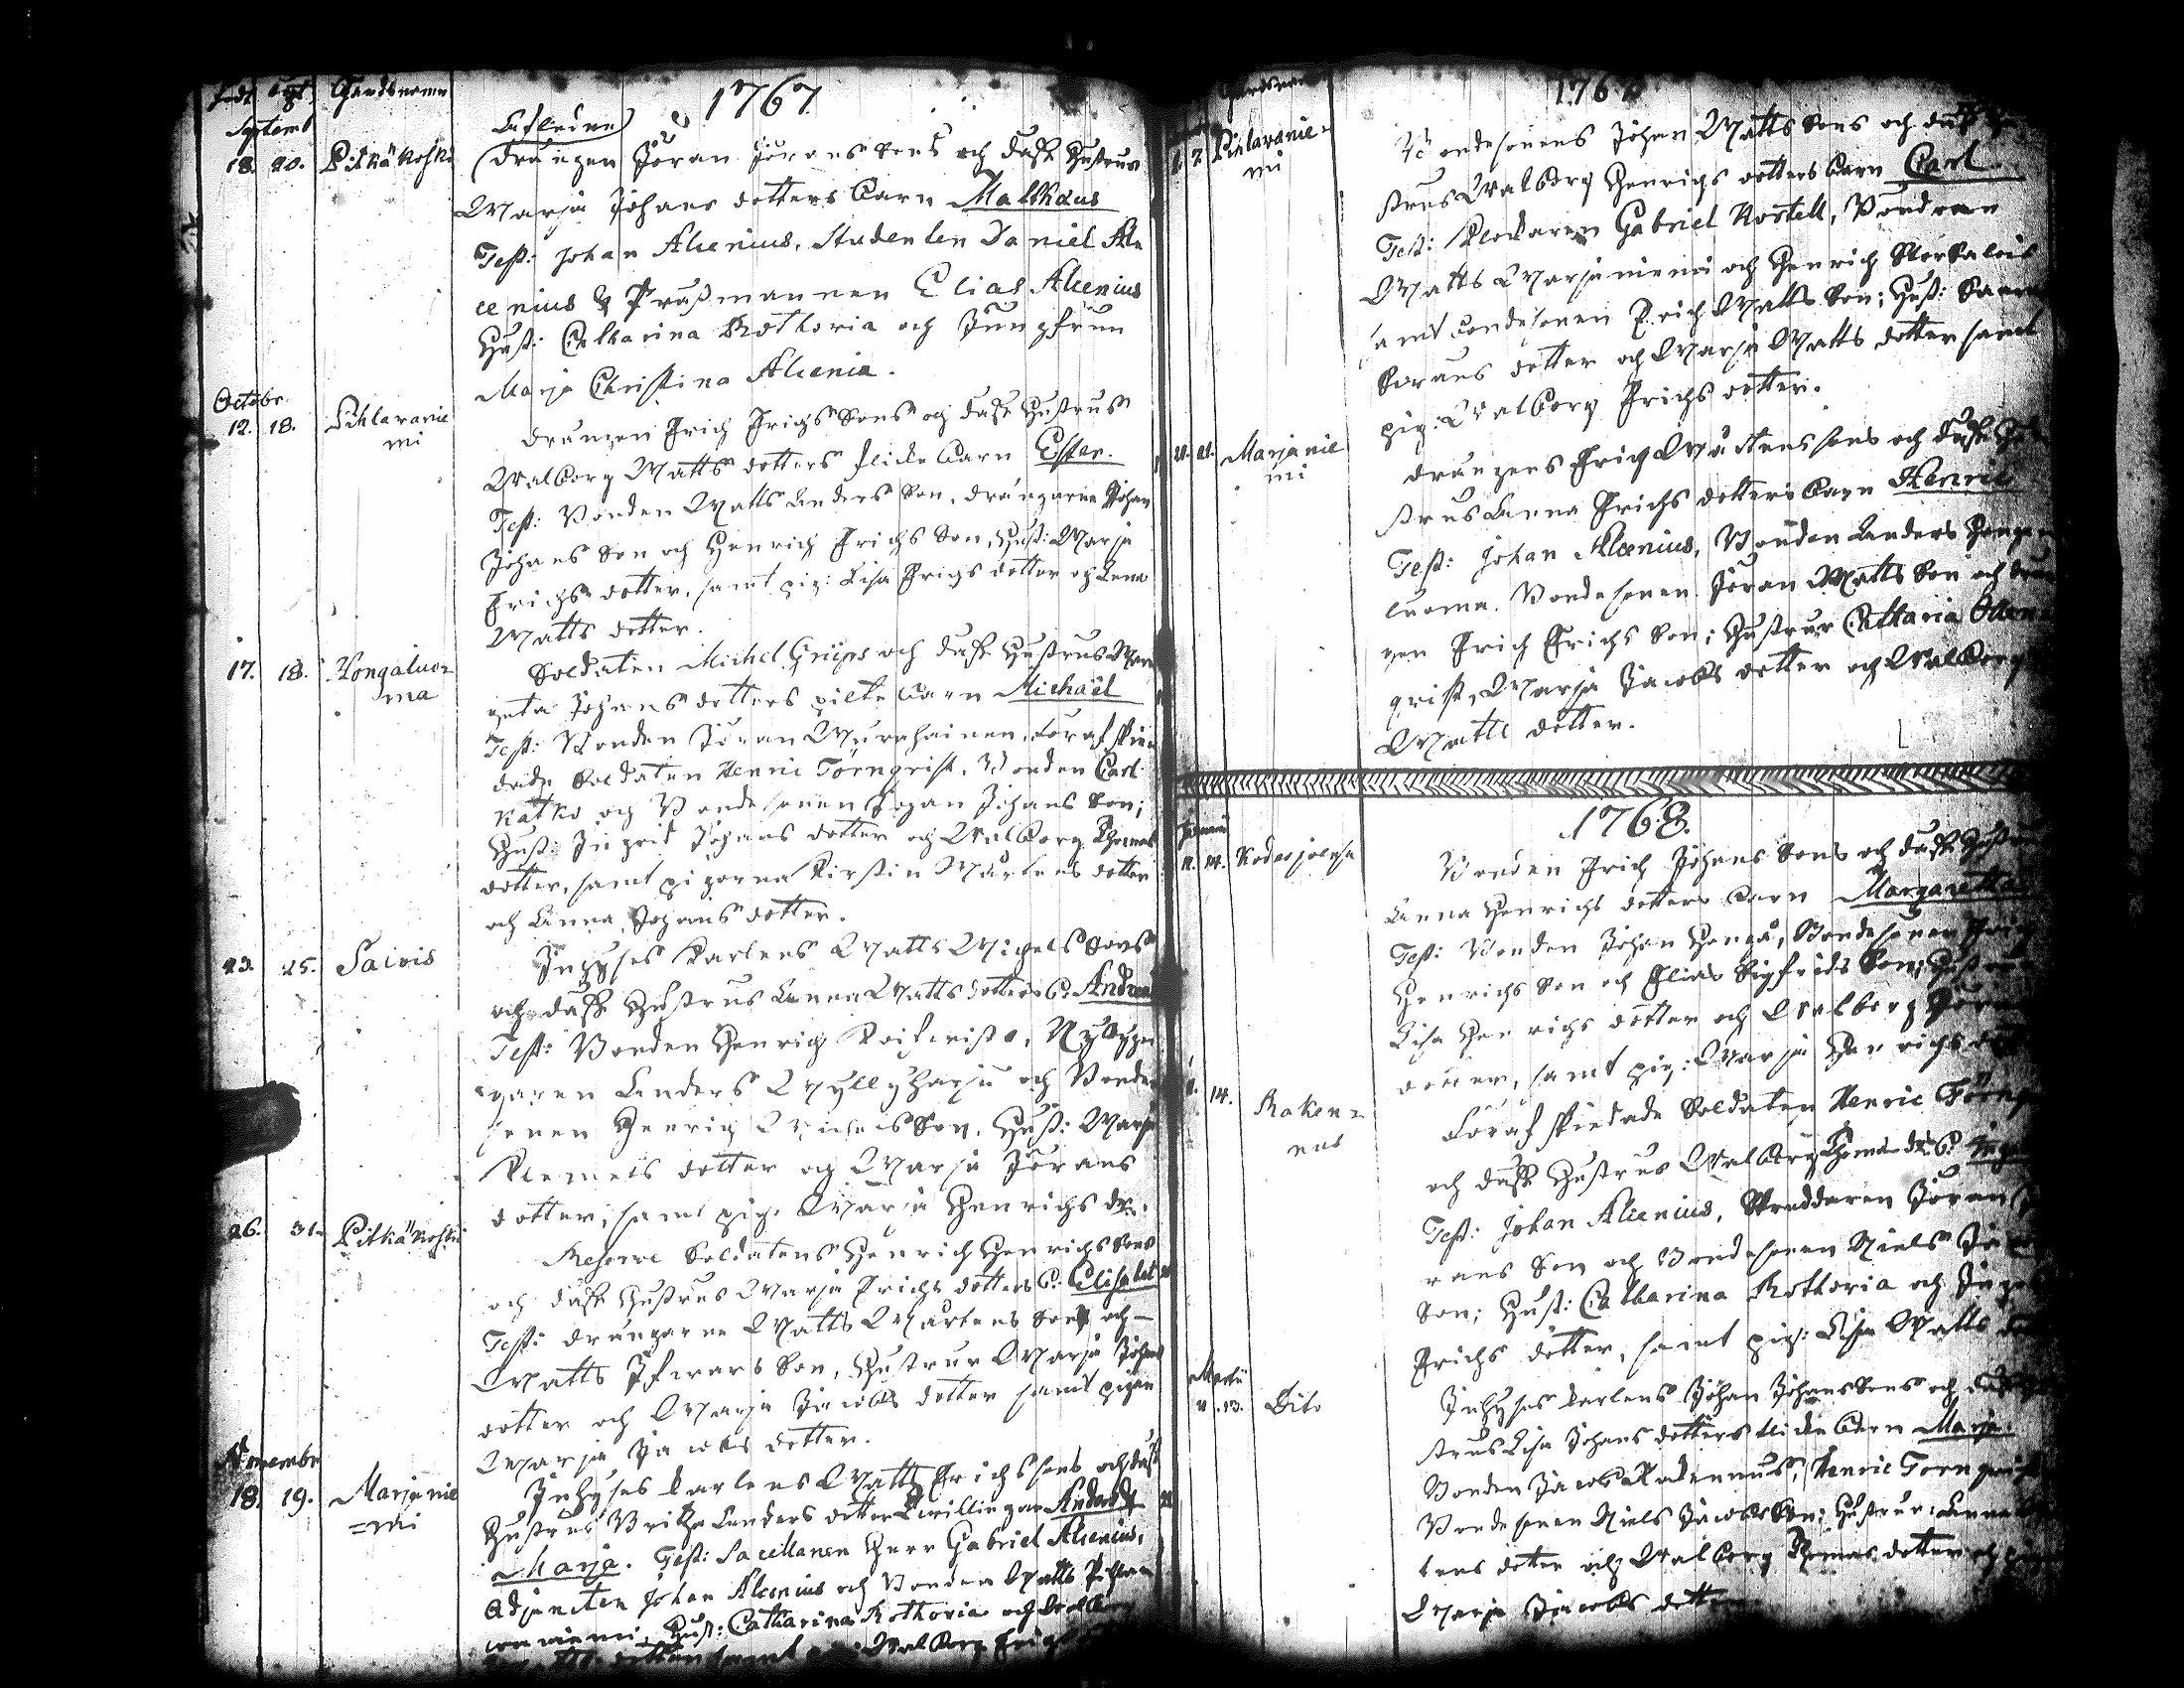 födt Cpt. Gårdsnamn
1767.
Septemb
18. 20. Pitkäkoski
Drängen Jöran Jörans Sons och dess Hustrus
Marja Johans dotters Barn Matthæus
Test: Johan Alcenius, Studenten Daniel Al
cenius & Prussmannen Elias Alcenius
Hust: Catharina Rothovia och Jungfrun
Maria Christina Alcenia.
Octobr.
12. 18. Pihlavanie
mi
Drängen Erich Erichs Sons och dess Hustrus
Walborg Matts dotters flicke barn Ester.
Test: Bonden Matts Anders Son, drängarne Johan
Johans Son och Henrich Erichs Son, Hust: Marja
Erichs dotter, samt pig: Lisa Erichs dotter och Lena
Matts dotter.
17. 18. Hongaluo=
ma
Soldaten Michel Grips och dess Hustrus Mar
geta Johans dotters pilte barn Michaël
Test: Bonden Jöran Murahainen, föraf skie
dade Soldaten Henric Törnqvist, Bonden Carl
Katko och Bondesonen Johan Johans Son;
Hust: Ingrid Johans dotter och Walborg Thomas
dotter, samt pigorna Kirstin Mårtens dotter
och Anna Johans dotter.
23. 25. Saivis
Inhyses Karlens Matts Michels Sons
och dess Hustrus Anna Matts dotters b: Andreas
Test: Bonden Henrich Koifuisto, Nybyg
garen Anders Myllyharju och Bonde
sonen Henrich Michels Son, Hust: Marja
Klemets dotter och Marja Jörans
dotter, samt pig: Marja Henrichs dr.
26. 31. Pitkäkoski
Reserve Soldatens Henrich Henrichs Sons
och dess Hustrus Marja Erichs dotters b: Elisabet
Test: drängarne Matts Mårtens Son och
Matts Ifvars Son, Hustrur Marja Johans
dotter och Marja Jacobs dotter samt pigan
Marja Jacobs dotter.
Novembr
18. 19. Marjanie
=mi
Inhyses karlens Matts Erichs sons och dess
Hustrus Britha Anders dotter Twillingar Anders &
Marja. Test: Sacellanen Herr Gabriel Alcenius,
Adjuncten Johan Alcenius och Bonden Matts Pihla
vaniemi, Hust: Catharina Rothovia och Walborg
dotter samt pig: Walborg Erichs
Gårdsnamn
1767
1. 7. Pihlavanie=
mi
Bondesonens Johan Matts Sons och dess Hu
strus Walborg Henrichs dotters barn Carl
Test: Klockaren Gabriel Rostell, Bonden
Matts Marjaniemi och Henrich
samt bondesonen Erich Matts Son; Hust:
Jörans dotter och Marja Matts dotter samt
pig: Walborg Erichs dotter.
21. 21. Marjanie
mi
Drängens Erich Mårtens sons och dess Hu
strus Anna Erichs dotters barn Henric
Test: Johan Alcenius, Bonden Anders Honga
luoma, Bondesonen Jöran Matts Son och drän
gen Erich Erichs Son; Hustrur Catharina
qvist, Marja Jacobs dotter och Walborg
Matts dotter.
1768.
Januarii
11. 14. Koskojoensu
Bonden Erich Johans Sons och dess Hustrus
Anna Henrichs dotters barn Margaretha
Test: Bonden Johan Honga, Bondesonen Erich
Henrichs Son och Elias Sigfrids Son; Hustrur
Lisa Henrichs dotter och Walborg Jörans
dotter, samt pig: Marja Henrichs dotter
14. Raken=
nus
Föraf skiedade Soldaten Henric Törnq
och dess Hustrus Walborg Thomæ dr. b:
Test: Johan Alcenius, Skreddaren Jöran
rans Son och Bondesonen Niels
Son; Hust: Catharina Rothovia och
Erichs dotter, samt pig: Lisa Matts
Martii
11. 13. Dito
Inhyses karlens Johan Johans Sons och dess
strus Lisa Johans dotters flicke barn Marja.
Bonden Jacob Rakennus, Henric Törnqvist
Bondesonen Niels Jacobs Son; Hustrur: Anna
tens dotter och Walborg Thomas dotter och
Marja Jacobs dotter